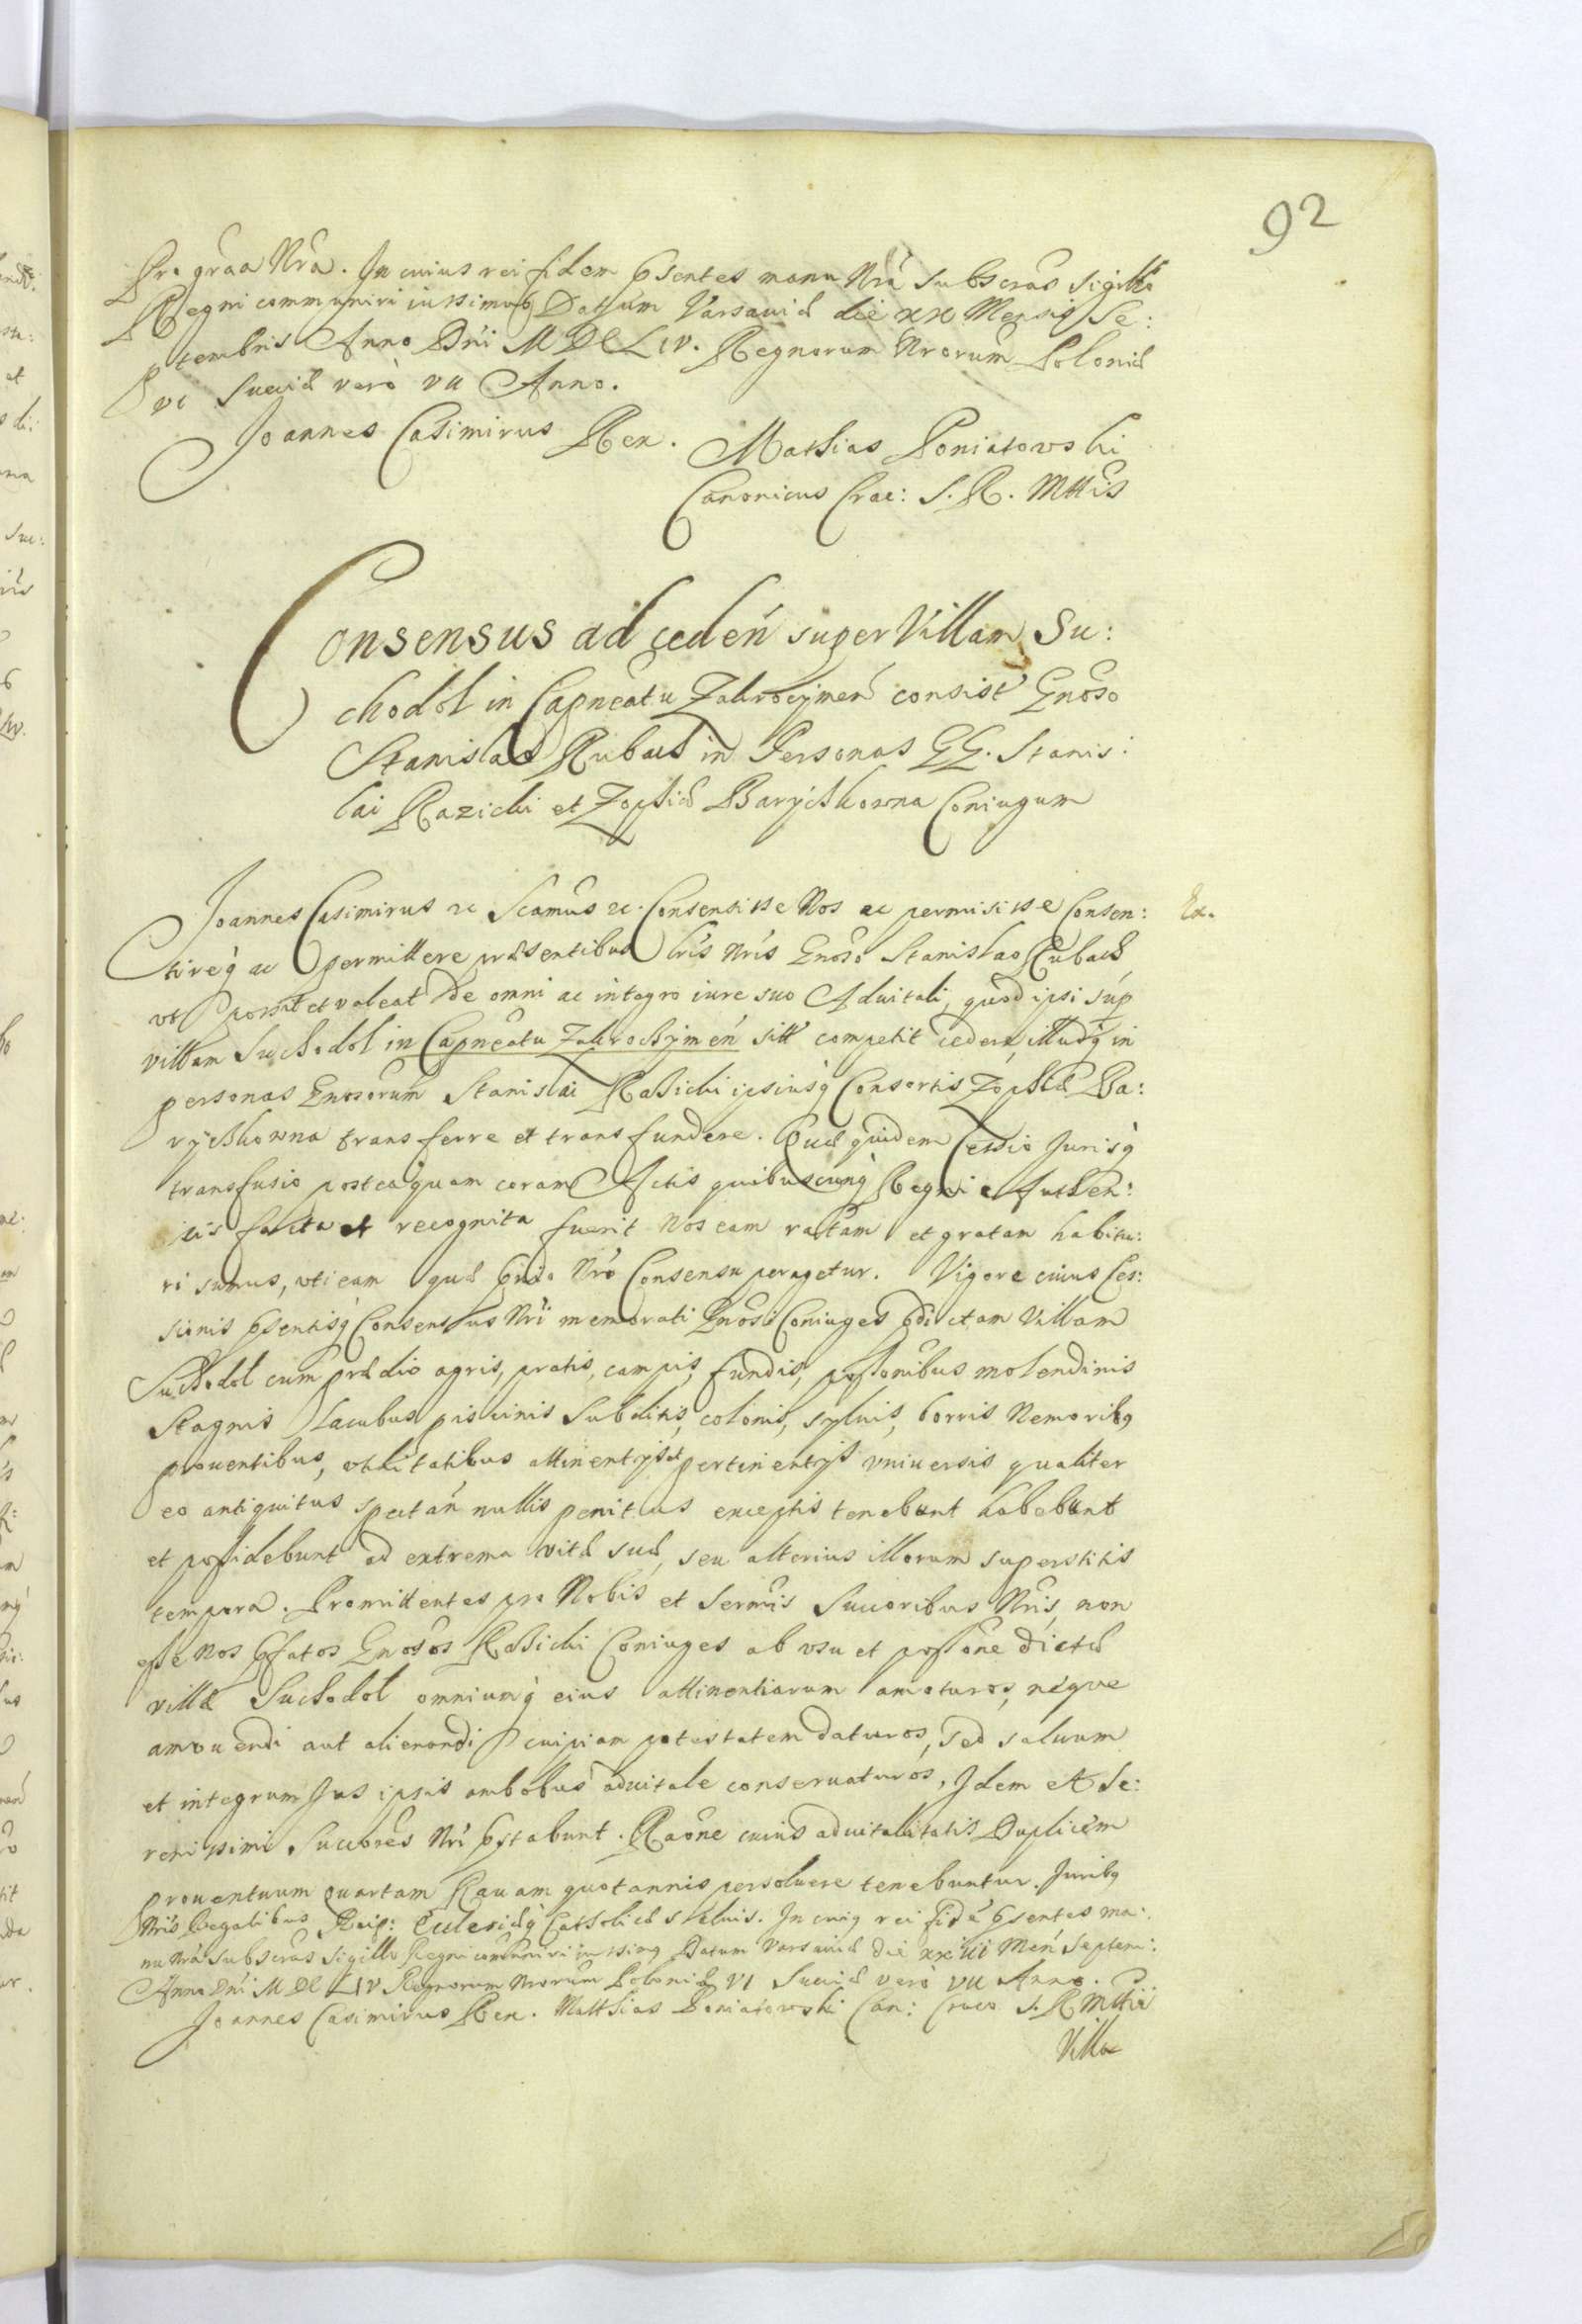 92
Pro graa Nra. In cuius rei fidem psentes manu Nrã subscras sigillo
Regni communiri iussimus Datum Varsaviæ die xx Mensis Se:
ptembris Anno Dni M DC LIV. Regnorum Nrorum Poloniæ
VI Sueciæ verò VII Anno.
Joannes Casimirus Rex. Mathias Poniatowski
Canonicus Crac: S. R. Mttis
Consensus ad ceden super Villam Su:
chodol in Capneatu Zakrocymen consist Gnoso
Stanislao Rubach in Personas GG. Stanis:
lai Razicki et Zophiæ Barychowna Coniugum
Joannes Casimirus &c Scamus &c. Consensisse Nos ac permisisse Consen: Ex.
tireq ac permittere præsentibus lris Nris Gnoso Stanislao Rubach,
ut possit et valeat de omni ac integro iure suo Advitali, quod ipsi sup
villam Suchodol in Capneatu Zakrochymen sitt competit cedere, illudq in
personas Gnosorum Stanislai Rasicki ipsiusq Consortis Zophiæ Ba:
rychowna transferre et transfundere. Quæ quidem Cessio Jurisq
transfusio posteaquam coram Actis quibuscunq Regni Authen:
ticis facta et recognita fuerit Nos eam ratam et gratam habitu:
ri sumus, uti eam quæ Nro Consensu peragetur. Vigore cuius Ces:
sionis psentisq Consensus Nri memorati Gnosi Coniuges pdictam Villam
Suchodol cum prædio agris, pratis, campis, fundis, possonibus molendinis
Stagnis Lacubus piscinis Subditis, colonis, sylvis, borris Nemoribq
proventibus, utilitatibus attinentijs et pertinentijs universis qualiter
eo antiquitus spectan nullis penitus exceptis tenebunt habebunt
et possidebunt ad extrema vitæ suæ, seu alterius illorum superstitis
tempora. Promittentes pro Nobis et Sermis Succoribus Nris, non
esse Nos pfatos Gnosos Rasicki Coniuges ab usu et possone dictæ
villæ Suchodol omniumq eius attinentiarum amoturos, neque
amovendi aut alienandi cuipiam potestatem daturos, sed salvum
et integrum Jus ipsis ambobus advitale conservaturos, Idem et Se:
renissimi Succores Nri pstabunt. Raone cuius advitalitatis Duplicem
proventuum quartam Ravam quotannis persolvere tenebuntur. Juribq
Nris Regalibus Reip: Ecclesiæq Catholicæ salvis. In cuiq rei fidē psentes ma:
nu Nrã subscras sigillo Regni communiri iussimq Datum Varsaviæ die xxiii Men Septem:
Anno Dni M DC LIV Regnorum Nrorum Poloniæ VI Sueciæ verò VII Anno.
Joannes Casimirus Rex. Matthias Poniatowski Can: Crac S. R. Mttis
Villæ